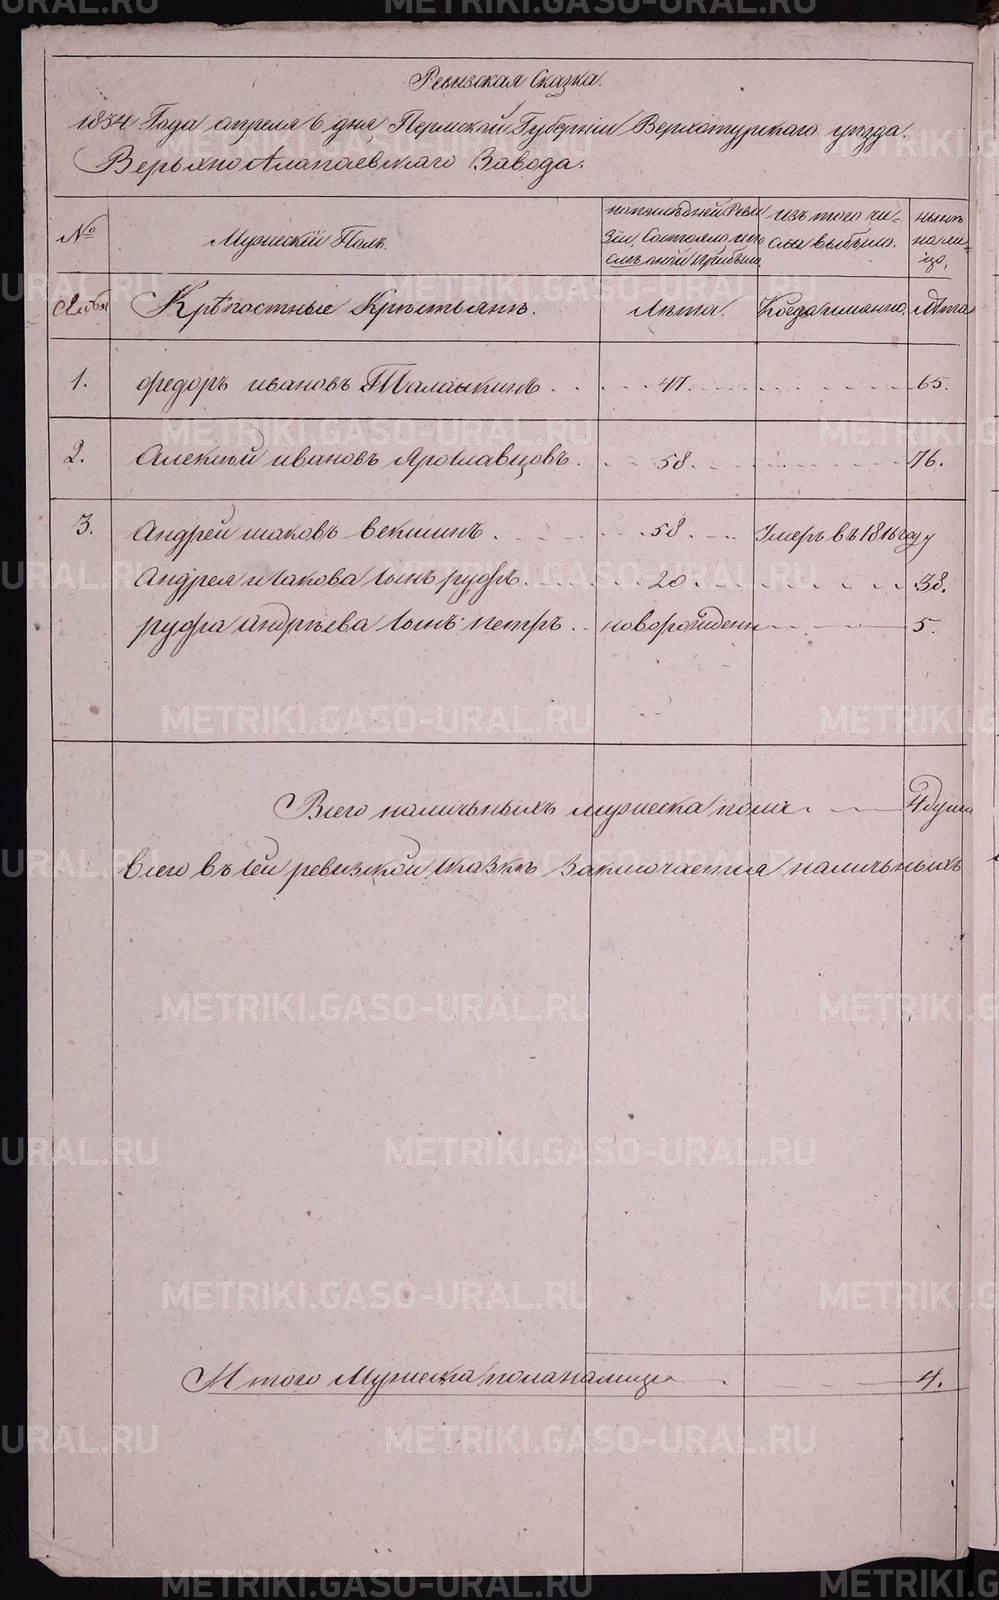 Ревизская Сказка.
1834 Года апреля 6 дня, Пермской Губернiи Верхотурскаго уезда.
Верьхно Алапаевскаго Завода.
№ Мужескiй Полъ. попоследней Реви из того чи- ныне
зiи, Состояло сла выбыло. нали-
цо,
Крѣпостные Крестьяне. Лета. Когда именно. Лѣта
1. Федоръ ивановъ Таланкинъ 47. 65.
2. Алексѣй ивановъ Ярославцовъ. 58. 76.
3. Андрей иаковъ векшинъ. 58. Умеръ въ 1816 году
Андрея иакова сынъ руфъ. 20. 38.
руфа андрѣева сынъ петръ новорожденъ 5.
Всего наличьныхъ мужеска пола 4 души
Всего въ сей ревизской сказке Заключается наличьныхъ
Итого Мужеска пола налицо 4.
METRIKI.GASO-URAL.RU